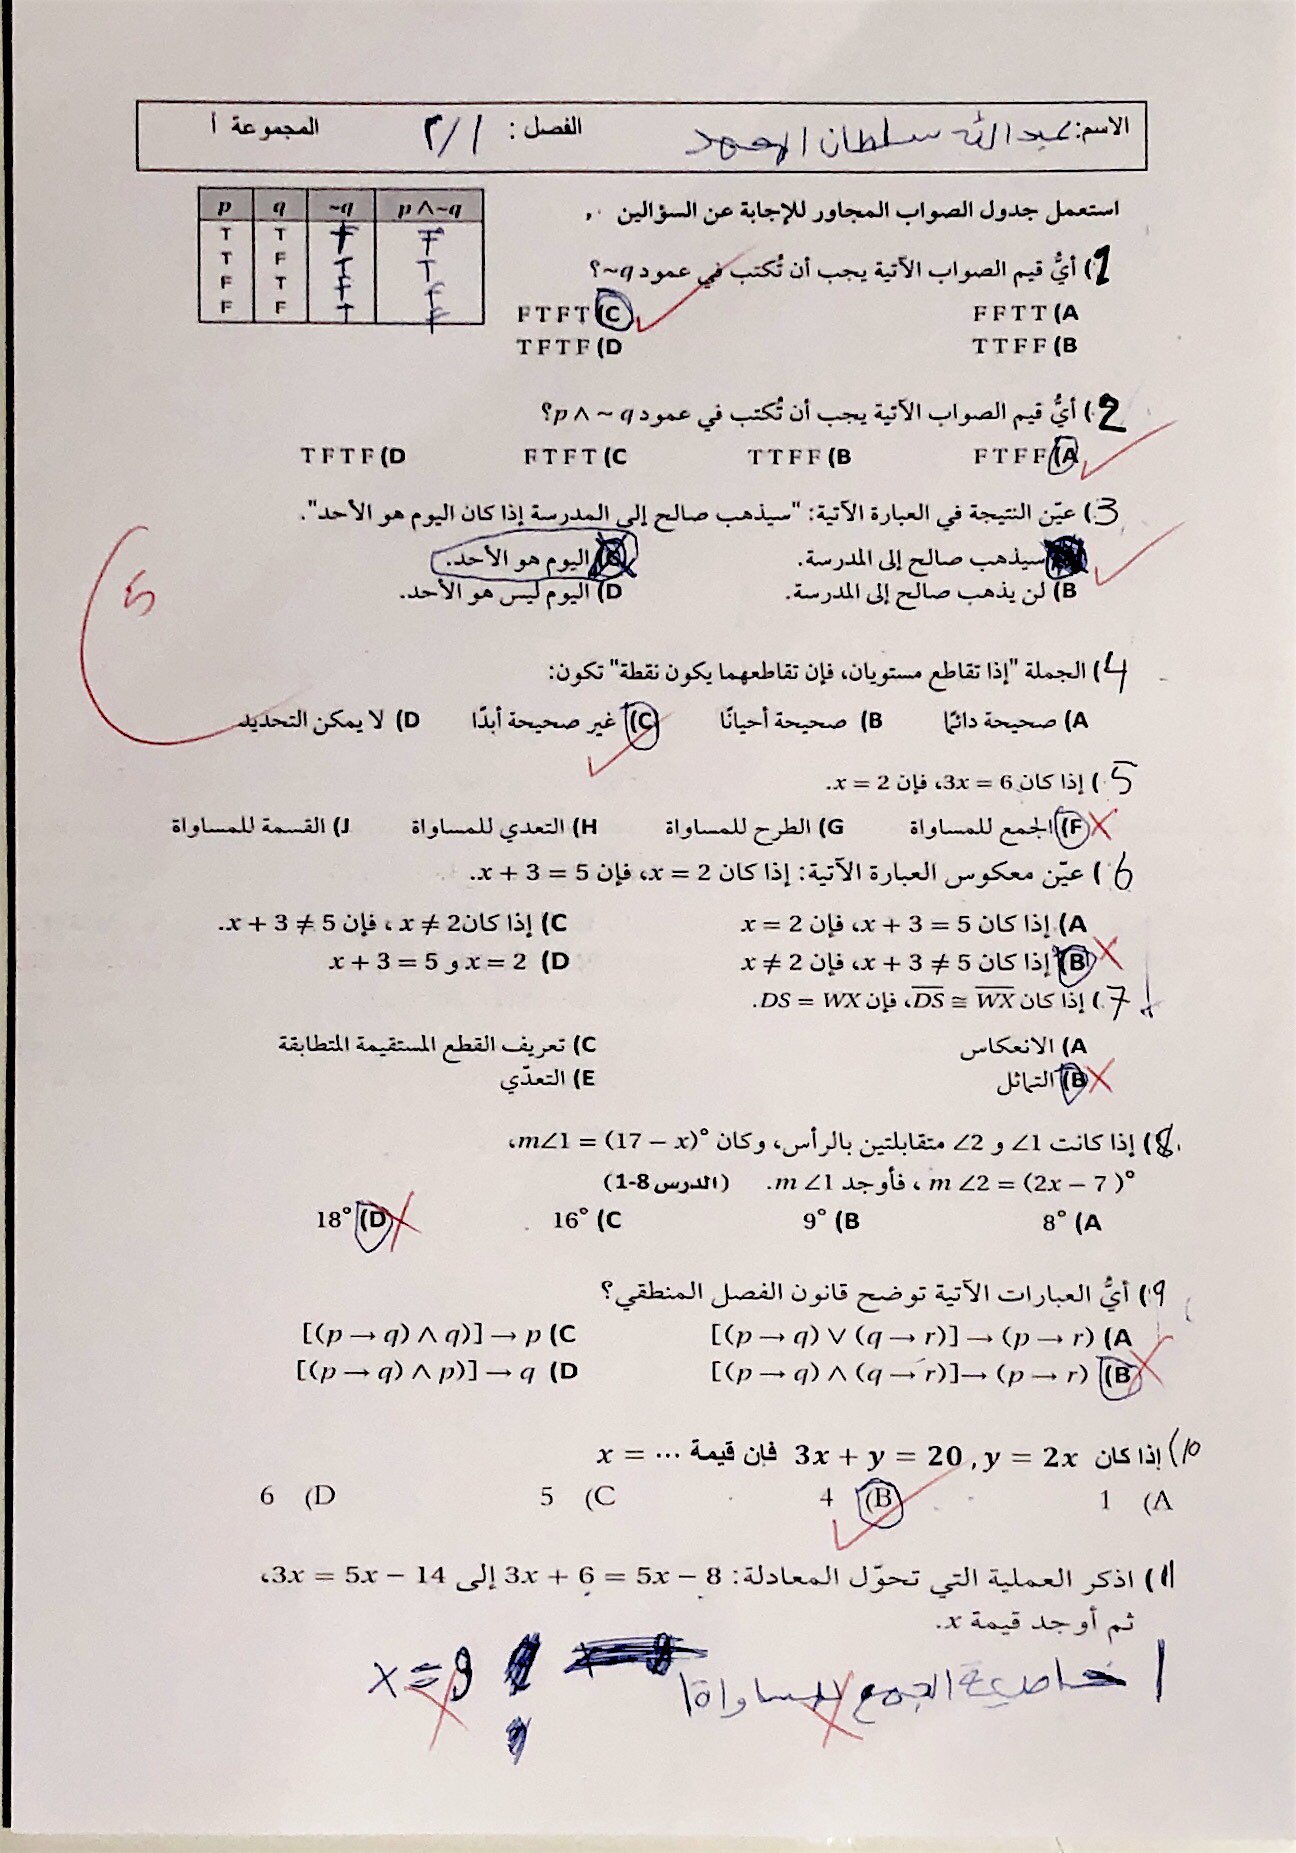 الاسم: عبدالله سلطان الفصل: ٢/١ المجموعة أ
استعمل جدول الصواب المجاور للإجابة عن السؤالين
p q ~q p ∧ ~q
T T F F
T F T T
F T F F
F F T F
1) أيُّ قيم الصواب الآتية يجب أن تُكتب في عمود ~q؟
A) F F T T C) F T F T
B) T T F F D) T F T F
2) أيُّ قيم الصواب الآتية يجب أن تُكتب في عمود p ∧ ~ q؟
A) F T F F B) T T F F C) F T F T D) T F T F
3) عيّن النتيجة في العبارة الآتية: "سيذهب صالح إلى المدرسة إذا كان اليوم هو الأحد".
سيذهب صالح إلى المدرسة. اليوم هو الأحد.
B) لن يذهب صالح إلى المدرسة. D) اليوم ليس هو الأحد.
5
4) الجملة "إذا تقاطع مستويان، فإن تقاطعهما يكون نقطة" تكون:
A) صحيحة دائمًا B) صحيحة أحيانًا C) غير صحيحة أبدًا D) لا يمكن التحديد
5) إذا كان 3x = 6، فإن x = 2.
F) الجمع للمساواة G) الطرح للمساواة H) التعدي للمساواة J) القسمة للمساواة
6) عيّن معكوس العبارة الآتية: إذا كان x = 2، فإن x + 3 = 5.
A) إذا كان x + 3 = 5، فإن x = 2 C) إذا كان x ≠ 2، فإن x + 3 ≠ 5.
B) إذا كان x + 3 ≠ 5، فإن x ≠ 2 D) x = 2 و x + 3 = 5
7) إذا كان D̅S̅ ≅ W̅X̅، فإن DS = WX.
A) الانعكاس C) تعريف القطع المستقيمة المتطابقة
B) التماثل E) التعدّي
8) إذا كانت ∠1 و ∠2 متقابلتين بالرأس، وكان m∠1 = (17 − x)°،
m ∠2 = (2x − 7 )° ، فأوجد m ∠1. (الدرس 8-1)
A) 8° B) 9° C) 16° D) 18°
9) أيُّ العبارات الآتية توضح قانون الفصل المنطقي؟
A) [(p → q) ∨ (q → r)] → (p → r) C) [(p → q) ∧ q)] → p
B) [(p → q) ∧ (q → r)]→ (p → r) D) [(p → q) ∧ p)] → q
10) إذا كان 3x + y = 20 , y = 2x فإن قيمة ... = x
A) 1 B) 4 C) 5 D) 6
11) اذكر العملية التي تحوّل المعادلة: 3x + 6 = 5x − 8 إلى 3x = 5x − 14،
ثم أوجد قيمة x.
خاصية الجمع للمساواة x = 9